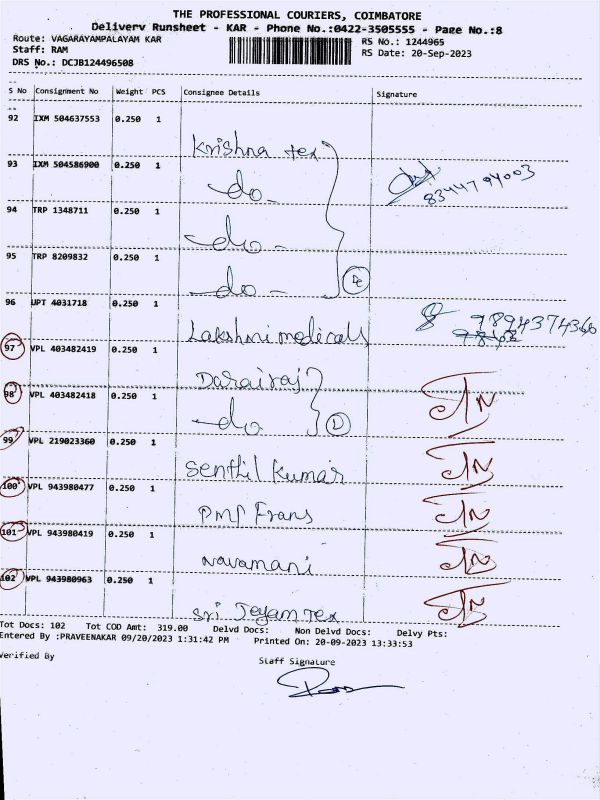 THE PROFESSIONAL COURIERS, COIMBATORE
Delivery Runsheet - KAR - Phone No.:0422-3505555 - Page No.:8
Route: VAGARAYAMPALAYAM KAR RS No.: 1244965
Staff: RAM RS Date: 20-Sep-2023
DRS No.: DCJB124496508
S No Consignment No Weight PCS Consignee Details Signature
92 IXM 504637553 0.250 1
Krishna tex
93 IXM 504586900 0.250 1
do - 8344794003
94 TRP 1348711 0.250 1
do -
95 TRP 8209832 0.250 1
do -
96 UPT 4031718 0.250 1
Lakshmi medicals 9894374366
97 VPL 403482419 0.250 1
Darairaj
98 VPL 403482418 0.250 1
do
99 VPL 219023360 0.250 1
Senthil Kumar
100 VPL 943980477 0.250 1
PMP Frans
101 VPL 943980419 0.250 1
Navamani
102 VPL 943980963 0.250 1
Sri Jeyam Tex
Tot Docs: 102 Tot COD Amt: 319.00 Delvd Docs: Non Delvd Docs: Delvy Pts:
Entered By :PRAVEENAKAR 09/20/2023 1:31:42 PM Printed On: 20-09-2023 13:33:53
Verified By Staff Signature